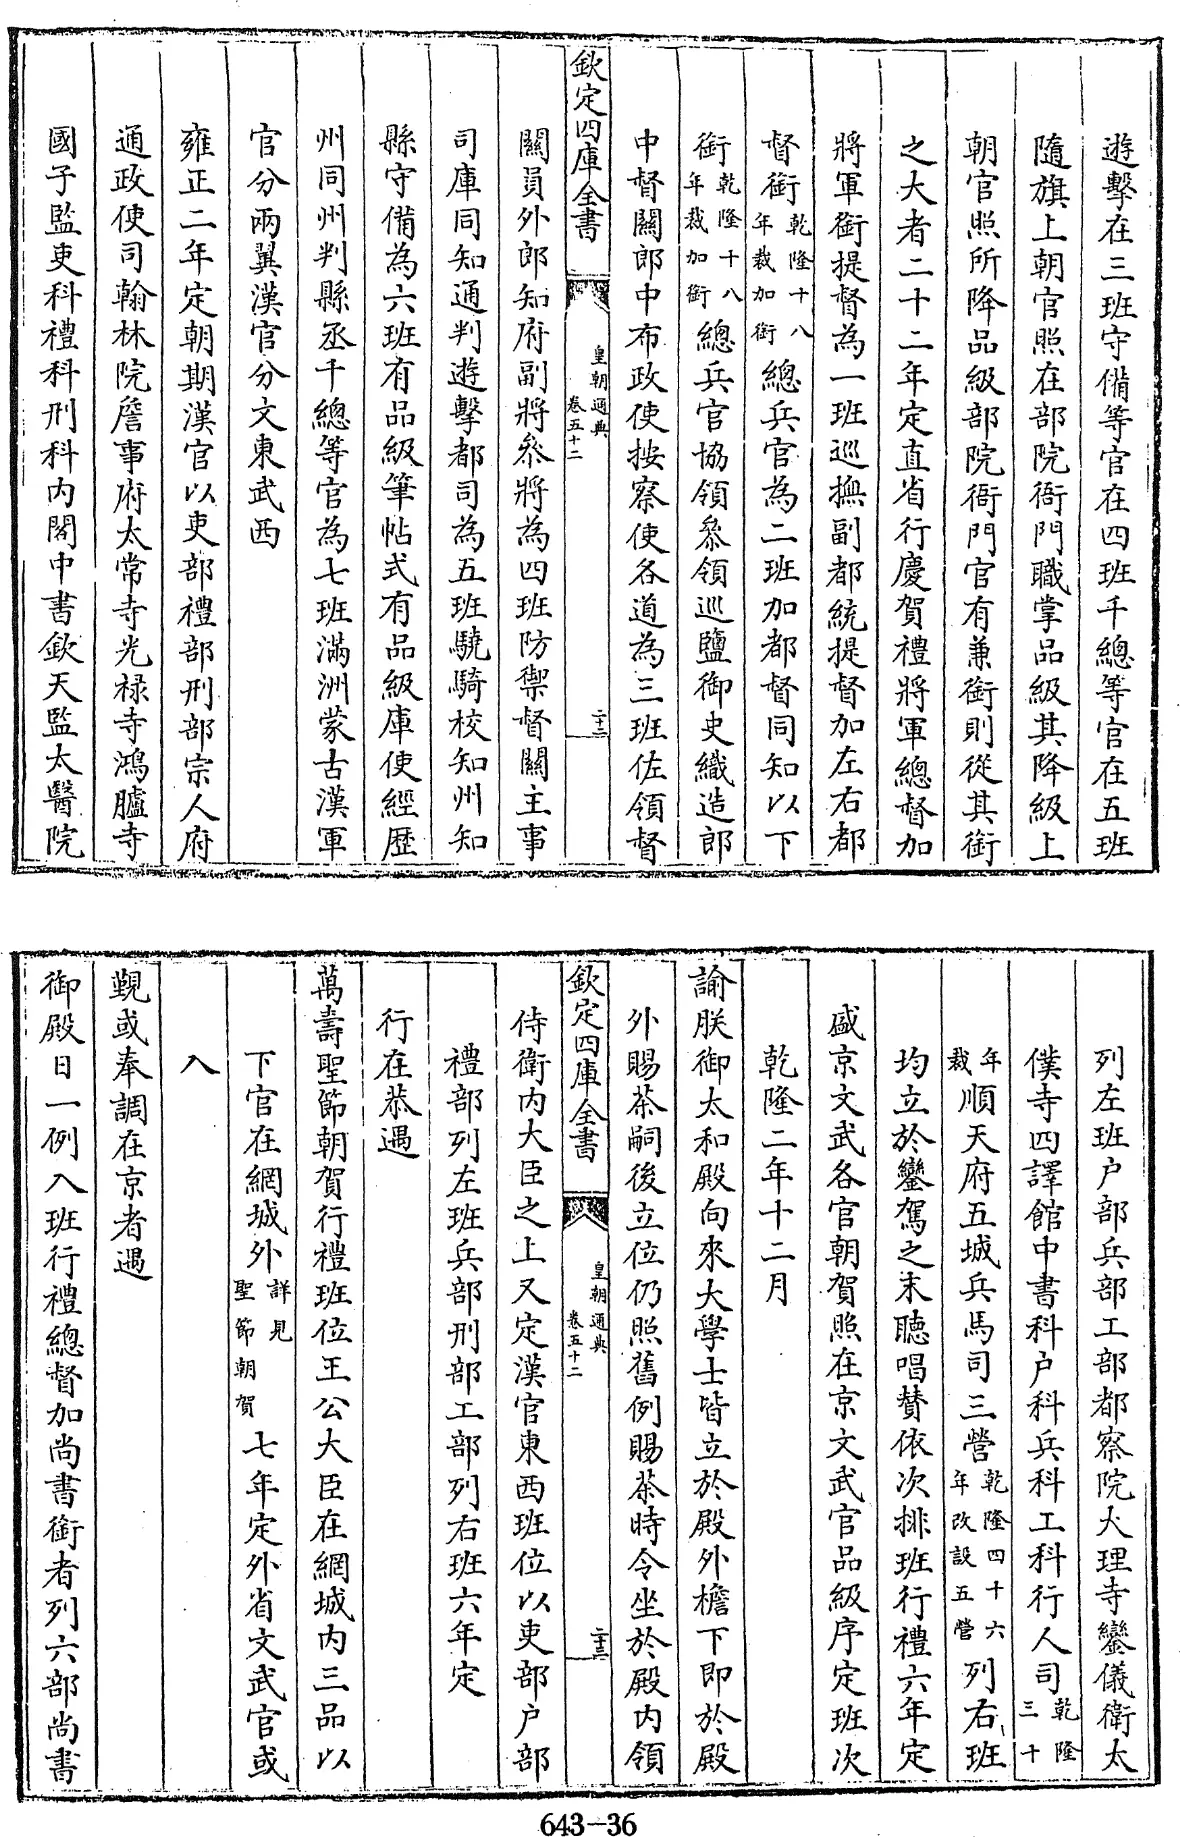 遊擊在三班守備等官在四班千總等官在五班
隨旗上朝官照在部院衙門職掌品級其降級上
朝官照所降品級部院衙門官有兼銜則從其銜
之大者二十二年定直省行慶賀禮將軍總督加
將軍銜提督為一班巡撫副都統提督加左右都
督銜乾隆十八年裁加銜總兵官為二班加都督同知以下
銜乾隆十八年裁加銜總兵官協領叅領巡鹽御史織造郎
中督關郎中布政使按察使各道為三班佐領督
欽定四庫全書 皇朝通典 卷五十二 二十二
關員外郎知府副將叅將為四班防禦督關主事
司庫同知通判遊擊都司為五班驍騎校知州知
縣守備為六班有品級筆帖式有品級庫使經歷
州同州判縣丞千總等官為七班滿洲蒙古漢軍
官分兩翼漢官分文東武西
雍正二年定朝期漢官以吏部禮部刑部宗人府
通政使司翰林院詹事府太常寺光禄寺鴻臚寺
國子監吏科禮科刑科内閣中書欽天監太醫院
列左班户部兵部工部都察院大理寺鑾儀衛太
僕寺四譯館中書科户科兵科工科行人司乾隆三十
年裁順天府五城兵馬司三營乾隆四十六年改設五營列右班
均立於鑾駕之末聽唱贊依次排班行禮六年定
盛京文武各官朝賀照在京文武官品級序定班次
乾隆二年十二月
諭朕御太和殿向來大學士皆立於殿外檐下即於殿
外賜茶嗣後立位仍照舊例賜茶時令坐於殿内領
欽定四庫全書 皇朝通典 卷五十二 二十三
侍衛内大臣之上又定漢官東西班位以吏部户部
禮部列左班兵部刑部工部列右班六年定
行在恭遇
萬壽聖節朝賀行禮班位王公大臣在網城内三品以
下官在網城外詳見聖節朝賀七年定外省文武官或
入
覲或奉調在京者遇
御殿日一例入班行禮總督加尚書銜者列六部尚書
643-36